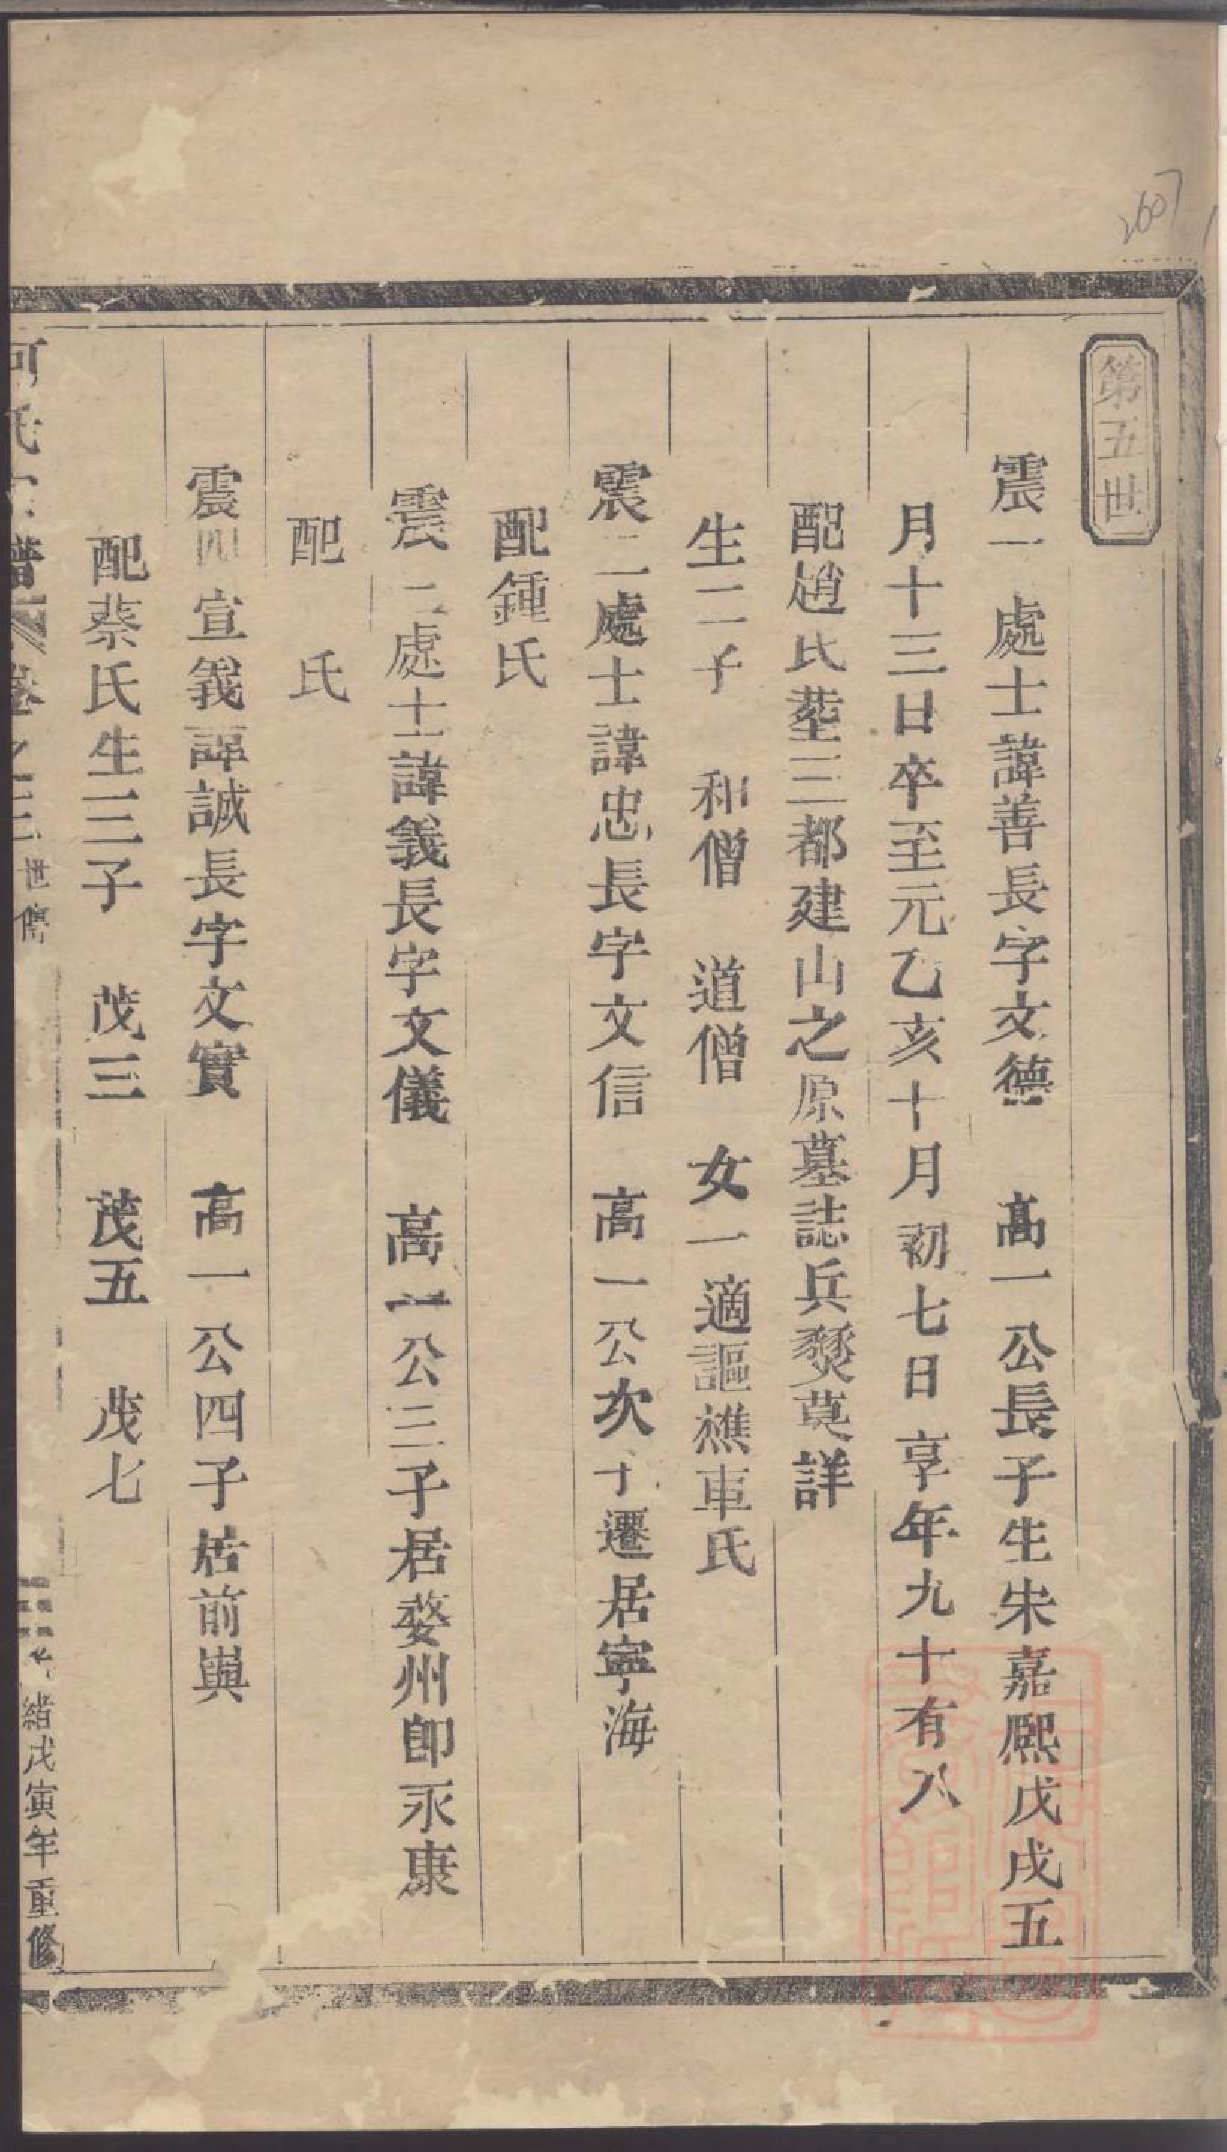 2607
第五世
震一處士諱善長字文德 高一公長子生宋嘉熙戊戌五
月十三日卒至元乙亥十月初七日享年九十有八
配趙氏塟三都建山之原墓誌兵燹莫詳
生二子 和僧 道僧 女一適謳樵車氏
震二處士諱忠長字文信 高一公次子遷居寧海
配鍾氏
震處士諱義長字文儀 高一公三子居婺州卽永康
配 氏
震四宣義諱誠長字文實 高一公四子居前與
配蔡氏生三子 茂三 茂五 茂七
何氏宗譜 卷之二 世傳 光緒戊寅年重修